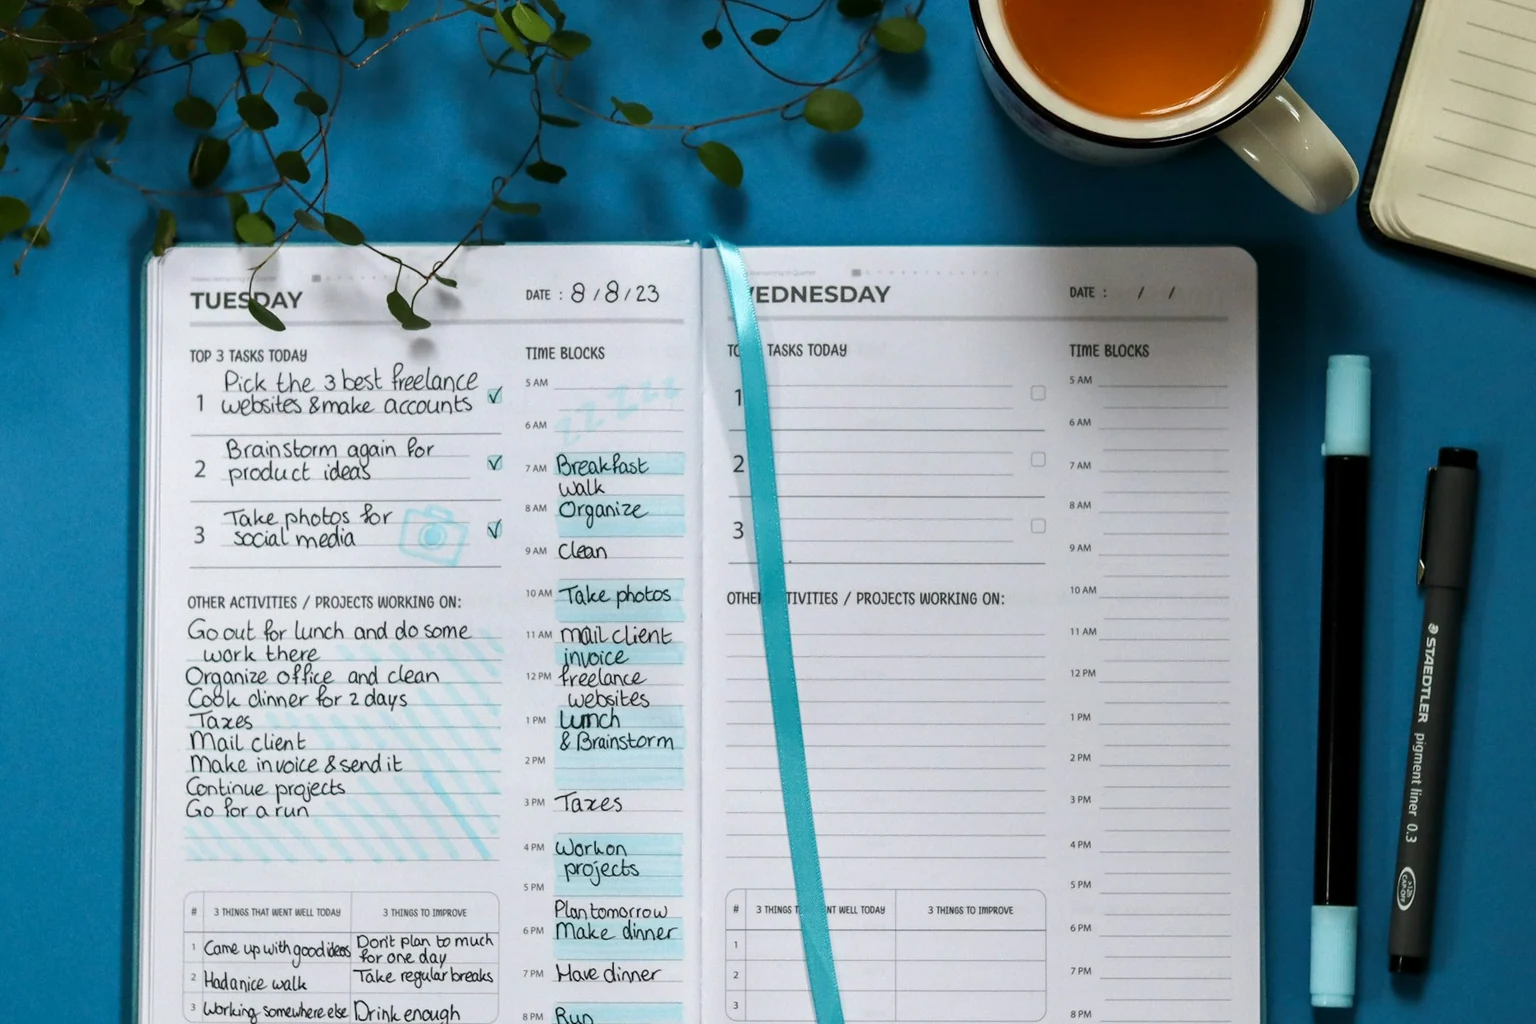 TUESDAY
DATE : 8 / 8 / 23
TOP 3 TASKS TODAY
1 Pick the 3 best freelance
websites & make accounts
2 Brainstorm again for
product ideas
3 Take photos for
social media
OTHER ACTIVITIES / PROJECTS WORKING ON:
Go out for lunch and do some
work there
Organize office and clean
Cook dinner for 2 days
Taxes
Mail client
Make invoice & send it
Continue projects
Go for a run
# 3 THINGS THAT WENT WELL TODAY 3 THINGS TO IMPROVE
1 Came up with good ideas Don't plan to much
for one day
2 Had a nice walk Take regular breaks
3 Working somewhere else Drink enough
TIME BLOCKS
5 AM
zzZzzz
6 AM
7 AM Breakfast
walk
8 AM Organize
9 AM Clean
10 AM Take photos
11 AM mail client
invoice
12 PM freelance
websites
1 PM Lunch
& Brainstorm
2 PM
3 PM Taxes
4 PM Work on
projects
5 PM
Plan tomorrow
6 PM Make dinner
7 PM Have dinner
8 PM Run
EDNESDAY
DATE : / /
TO TASKS TODAY
1
2
3
OTHE TIVITIES / PROJECTS WORKING ON:
# 3 THINGS T NT WELL TODAY 3 THINGS TO IMPROVE
1
2
3
TIME BLOCKS
5 AM
6 AM
7 AM
8 AM
9 AM
10 AM
11 AM
12 PM
1 PM
2 PM
3 PM
4 PM
5 PM
6 PM
7 PM
8 PM
STAEDTLER pigment liner 0.3